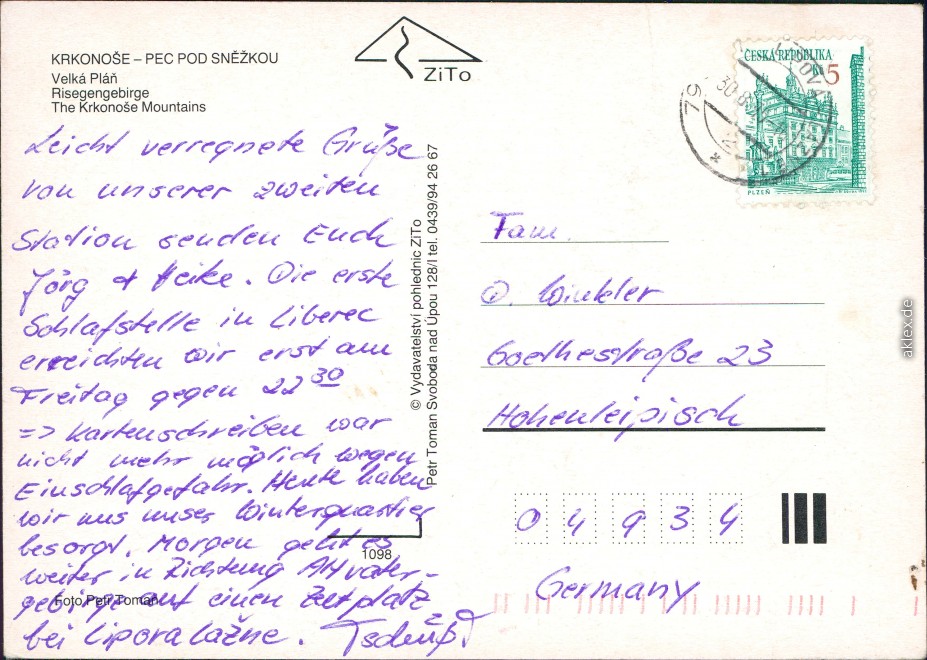 KRKONOŠE – PEC POD SNĚŽKOU
Velká Pláň
Risegengebirge
The Krkonoše Mountains
ZiTo
Leicht verregnete Grüße
von unserer zweiten
Station senden Euch
Jörg + Heike. Die erste
Schlafstelle in Liberec
erreichten wir erst am
Freitag gegen 22 30
=> Kartenschreiben war
nicht mehr möglich wegen
Einschlafgefahr. Heute haben
wir uns unser Winterquartier
besorgt. Morgen geht es
weiter in Richtung Altvater-
gebirge auf einen Zeltplatz
bei Lipova Lažne. Tschüß!
1098
Foto Petr Toman
© Vydavatelství pohlednic ZiTo
Petr Toman Svoboda nad Úpou 128/I tel. 0439/94 26 67
ČESKÁ REPUBLIKA
Kč 5
PLZEŇ
Fam.
D. Winkler
Goethestraße 23
Hohenleipisch
0 4 9 3 4
Germany
aklex.de